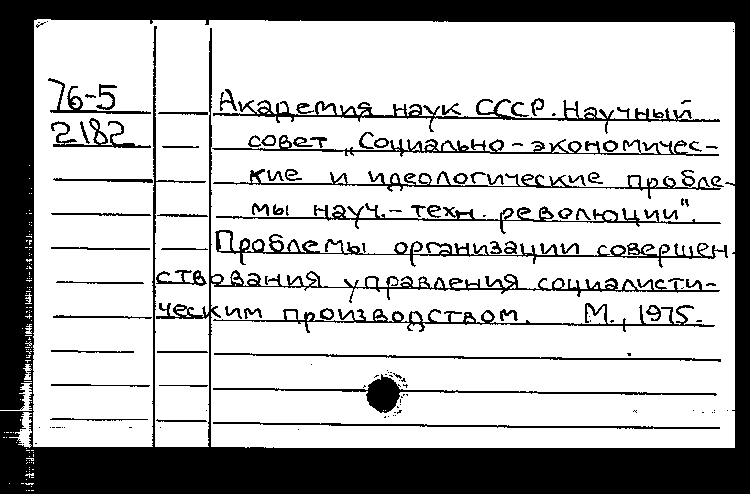 76-5
2182
Академия наук СССР. Научный
совет „Социально-экономичес-
кие и идеологические пробле-
мы науч.-техн. революции".
Проблемы организации совершен
ствования управления социалисти-
ческим производством. М., 1975.